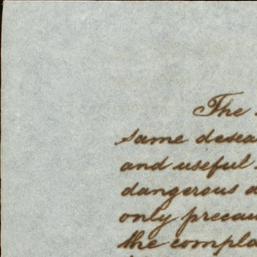 The
same desea
and useful
dangerous a
only precau
the compla